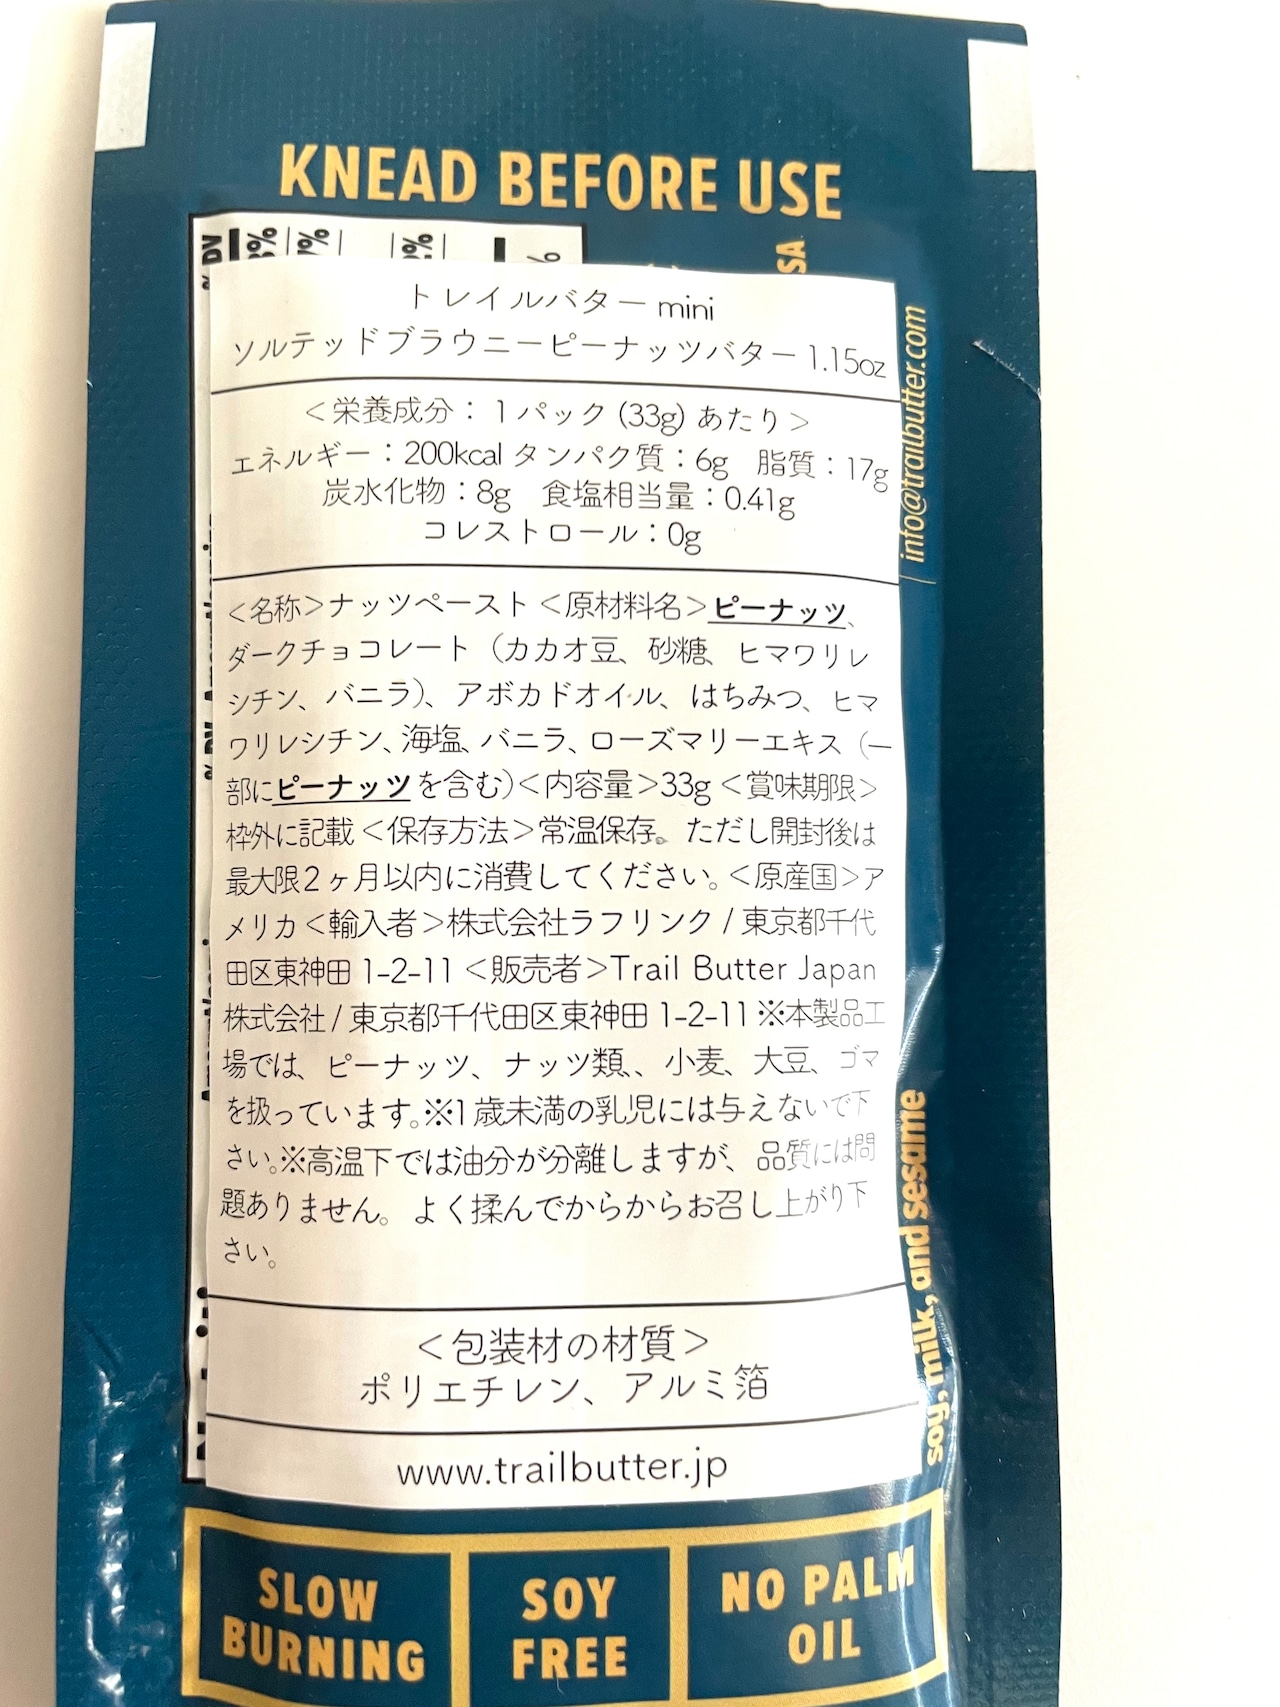 KNEAD BEFORE USE
% DV
トレイルバター mini
ソルテッドブラウニーピーナッツバター 1.15oz
＜栄養成分：1パック (33g) あたり＞
エネルギー：200kcal タンパク質：6g　脂質：17g
炭水化物：8g　食塩相当量：0.41g
コレストロール：0g
＜名称＞ナッツペースト＜原材料名＞ピーナッツ、
ダークチョコレート（カカオ豆、砂糖、ヒマワリレ
シチン、バニラ）、アボカドオイル、はちみつ、ヒマ
ワリレシチン、海塩、バニラ、ローズマリーエキス（一
部にピーナッツを含む）＜内容量＞33g＜賞味期限＞
枠外に記載＜保存方法＞常温保存。ただし開封後は
最大限2ヶ月以内に消費してください。＜原産国＞ア
メリカ＜輸入者＞株式会社ラフリンク / 東京都千代
田区東神田 1-2-11＜販売者＞Trail Butter Japan
株式会社 / 東京都千代田区東神田 1-2-11※本製品工
場では、ピーナッツ、ナッツ類、、小麦、大豆、ゴマ
を扱っています。※1歳未満の乳児には与えないで下
さい。※高温下では油分が分離しますが、品質には問
題ありません。よく揉んでからからお召し上がり下
さい。
＜包装材の材質＞
ポリエチレン、アルミ箔
www.trailbutter.jp
info@trailbutter.com
soy, milk, and sesame
SLOW
BURNING
SOY
FREE
NO PALM
OIL